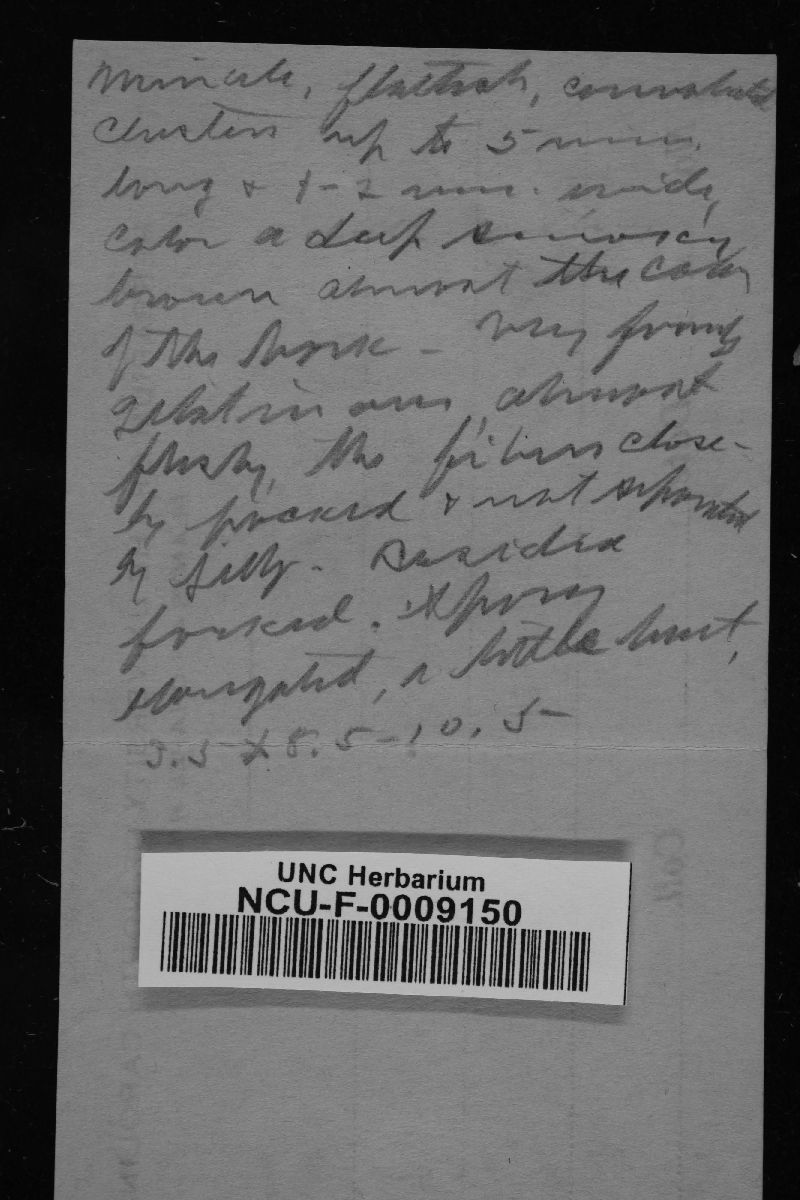 Minute, flattish, convoluted
clusters up to 5 mm.
long & 1-2 mm. wide,
color a deep
brown almost the color
of the bark - Very firmly
gelatinous, almost
fleshy, the fibers close-
ly packed & not separated
by jelly. Basidia
forked. Spores
elongated, a little bent,
3.5 x 8.5-10.5
UNC Herbarium
NCU-F-0009150